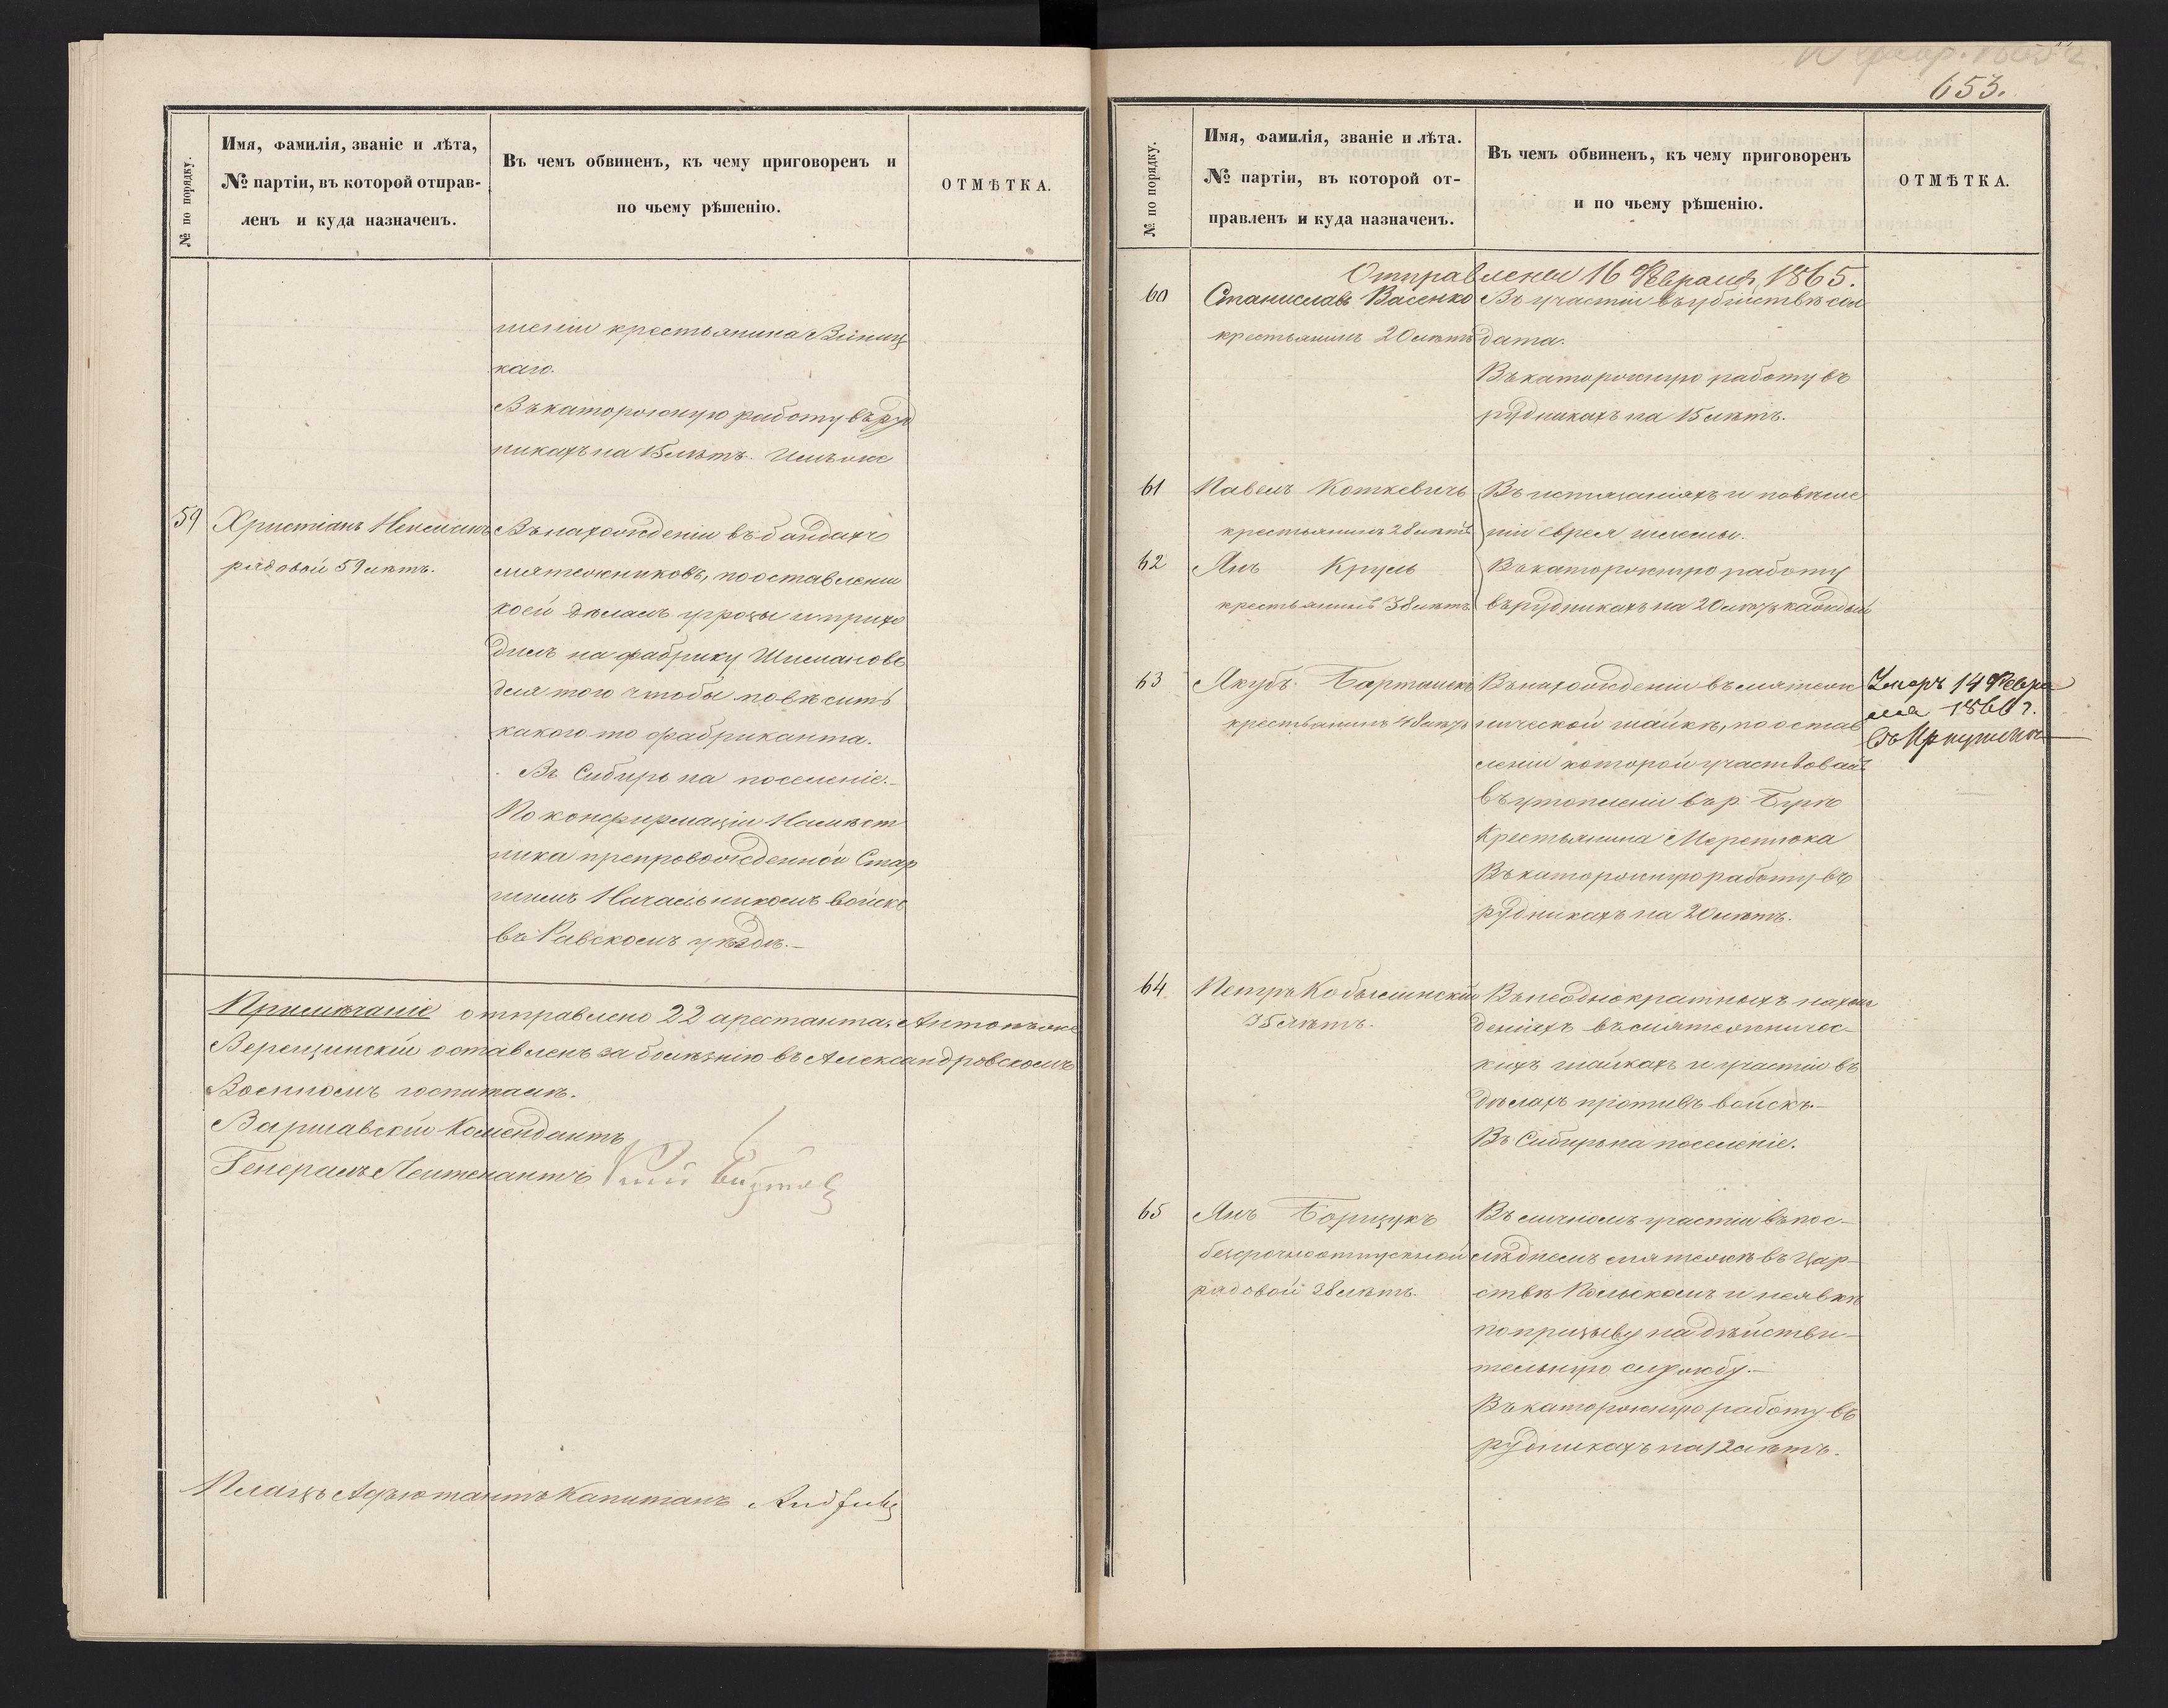 № по порядку.
Имя, фамилія, званіе и лѣта,
№ партіи, въ которой отправ-
ленъ и куда назначенъ.
Въ чемъ обвиненъ, къ чему приговоренъ и
по чьему рѣшенію.
ОТМѢТКА.
шеніи крестьянина
каго.
Въ каторожную работу въ руд
никахъ на 15 лѣтъ.
59
Христіанъ
рядовой 59 лѣтъ.
Въ нахожденіи въ бандахъ
мятежниковъ, по оставленіи
коей дѣлалъ угрозы и прихо
дилъ на фабрику Шиманова
для того чтобы повѣсить
какого то фабриканта.
Въ Сибирь на поселеніе.-
По конфирмаціи Намѣст
ника препровожденной Стар
шимъ Начальникомъ войскъ
въ Равскомъ уѣздѣ.-
Примѣчаніе отправлено 22 арестанта, Антонъ же
Верещинскій оставленъ за болѣзнію въ Александровскомъ
Военномъ госпиталѣ.
Варшавскій Комендантъ
Генералъ Лейтенантъ
Плацъ Адъютантъ Капитанъ
653.
№ по порядку.
Имя, фамилія, званіе и лѣта.
№ партіи, въ которой от-
правленъ и куда назначенъ.
Въ чемъ обвиненъ, къ чему приговоренъ
и по чьему рѣшенію.
ОТМѢТКА.
Отправлены 16 Февраля 1865.
60
Станиславъ Васенко
крестьянинъ 20 лѣтъ
Въ участіи въ убійствѣ сол
дата.
Въ каторожную работу въ
рудникахъ на 15 лѣтъ.
61
Павелъ Коткевичъ
крестьянинъ 28 лѣтъ
62
Янъ Круль
крестьянинъ 38 лѣтъ
Въ истязаніяхъ и повѣше
ніи еврея
Въ каторожную работу
въ рудникахъ на 20 лѣтъ каждый
63
Якубъ
крестьянинъ 48 лѣтъ
Въ нахожденіи въ мятеж
нической шайкѣ, по остав
леніи которой участвовалъ
въ утопленіи въ р. Бугѣ
Крестьянина Меретюка
Въ каторожную работу въ
рудникахъ на 20 лѣтъ.
Умеръ 14 Февра
ля 1866 г.
въ Иркутскѣ
64
Петръ Кобылинскій
35 лѣтъ.
Въ неоднократныхъ нахож
деніяхъ въ мятежничес-
кихъ шайкахъ и участіи въ
дѣлахъ противъ войскъ.-
Въ Сибирь на поселеніе.
65
Янъ Борщукъ
безсрочноотпускной
рядовой 38 лѣтъ.
Въ личномъ участіи въ пос-
лѣднемъ мятежѣ въ Цар-
ствѣ Польскомъ и неявкѣ
по призыву на дѣйстви-
тельную службу.-
Въ каторожную работу въ
рудникахъ на 12 лѣтъ.